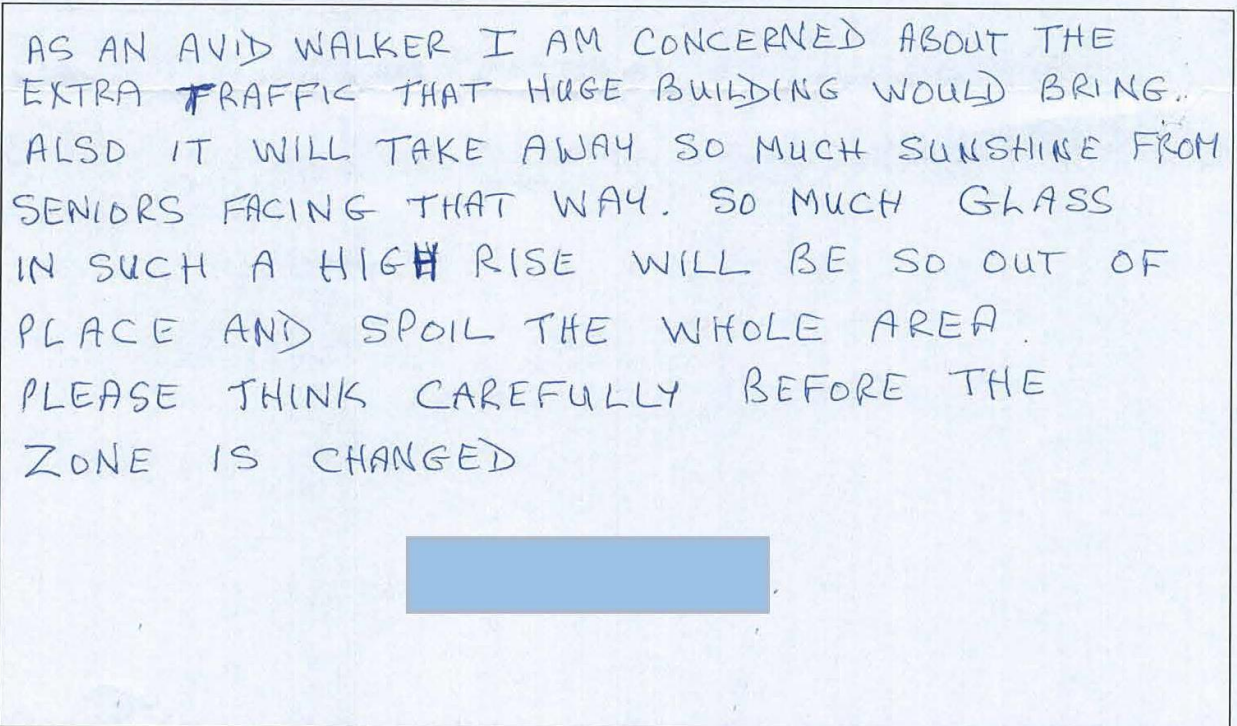 AS AN AVID WALKER I AM CONCERNED ABOUT THE
EXTRA TRAFFIC THAT HUGE BUILDING WOULD BRING.
ALSO IT WILL TAKE AWAY SO MUCH SUNSHINE FROM
SENIORS FACING THAT WAY. SO MUCH GLASS
IN SUCH A HIGH RISE WILL BE SO OUT OF
PLACE AND SPOIL THE WHOLE AREA.
PLEASE THINK CAREFULLY BEFORE THE
ZONE IS CHANGED